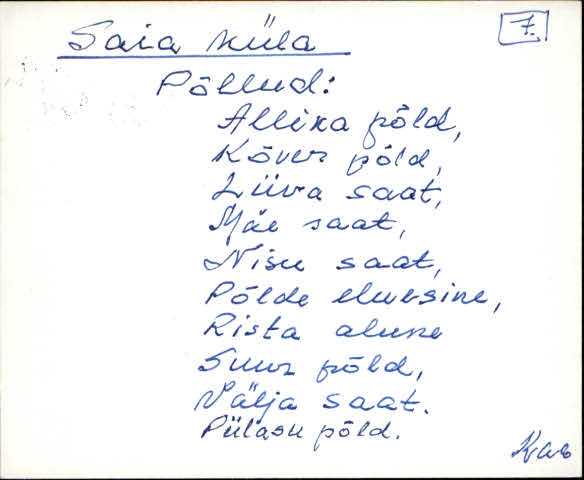 Saia küla
7.
Põllud:
Allika põld,
Kõver põld,
Liiva saat,
Mäe saat,
Nisu saat,
Põlde
Rista alune
Suur põld,
Välja saat.
Pülasu põld.